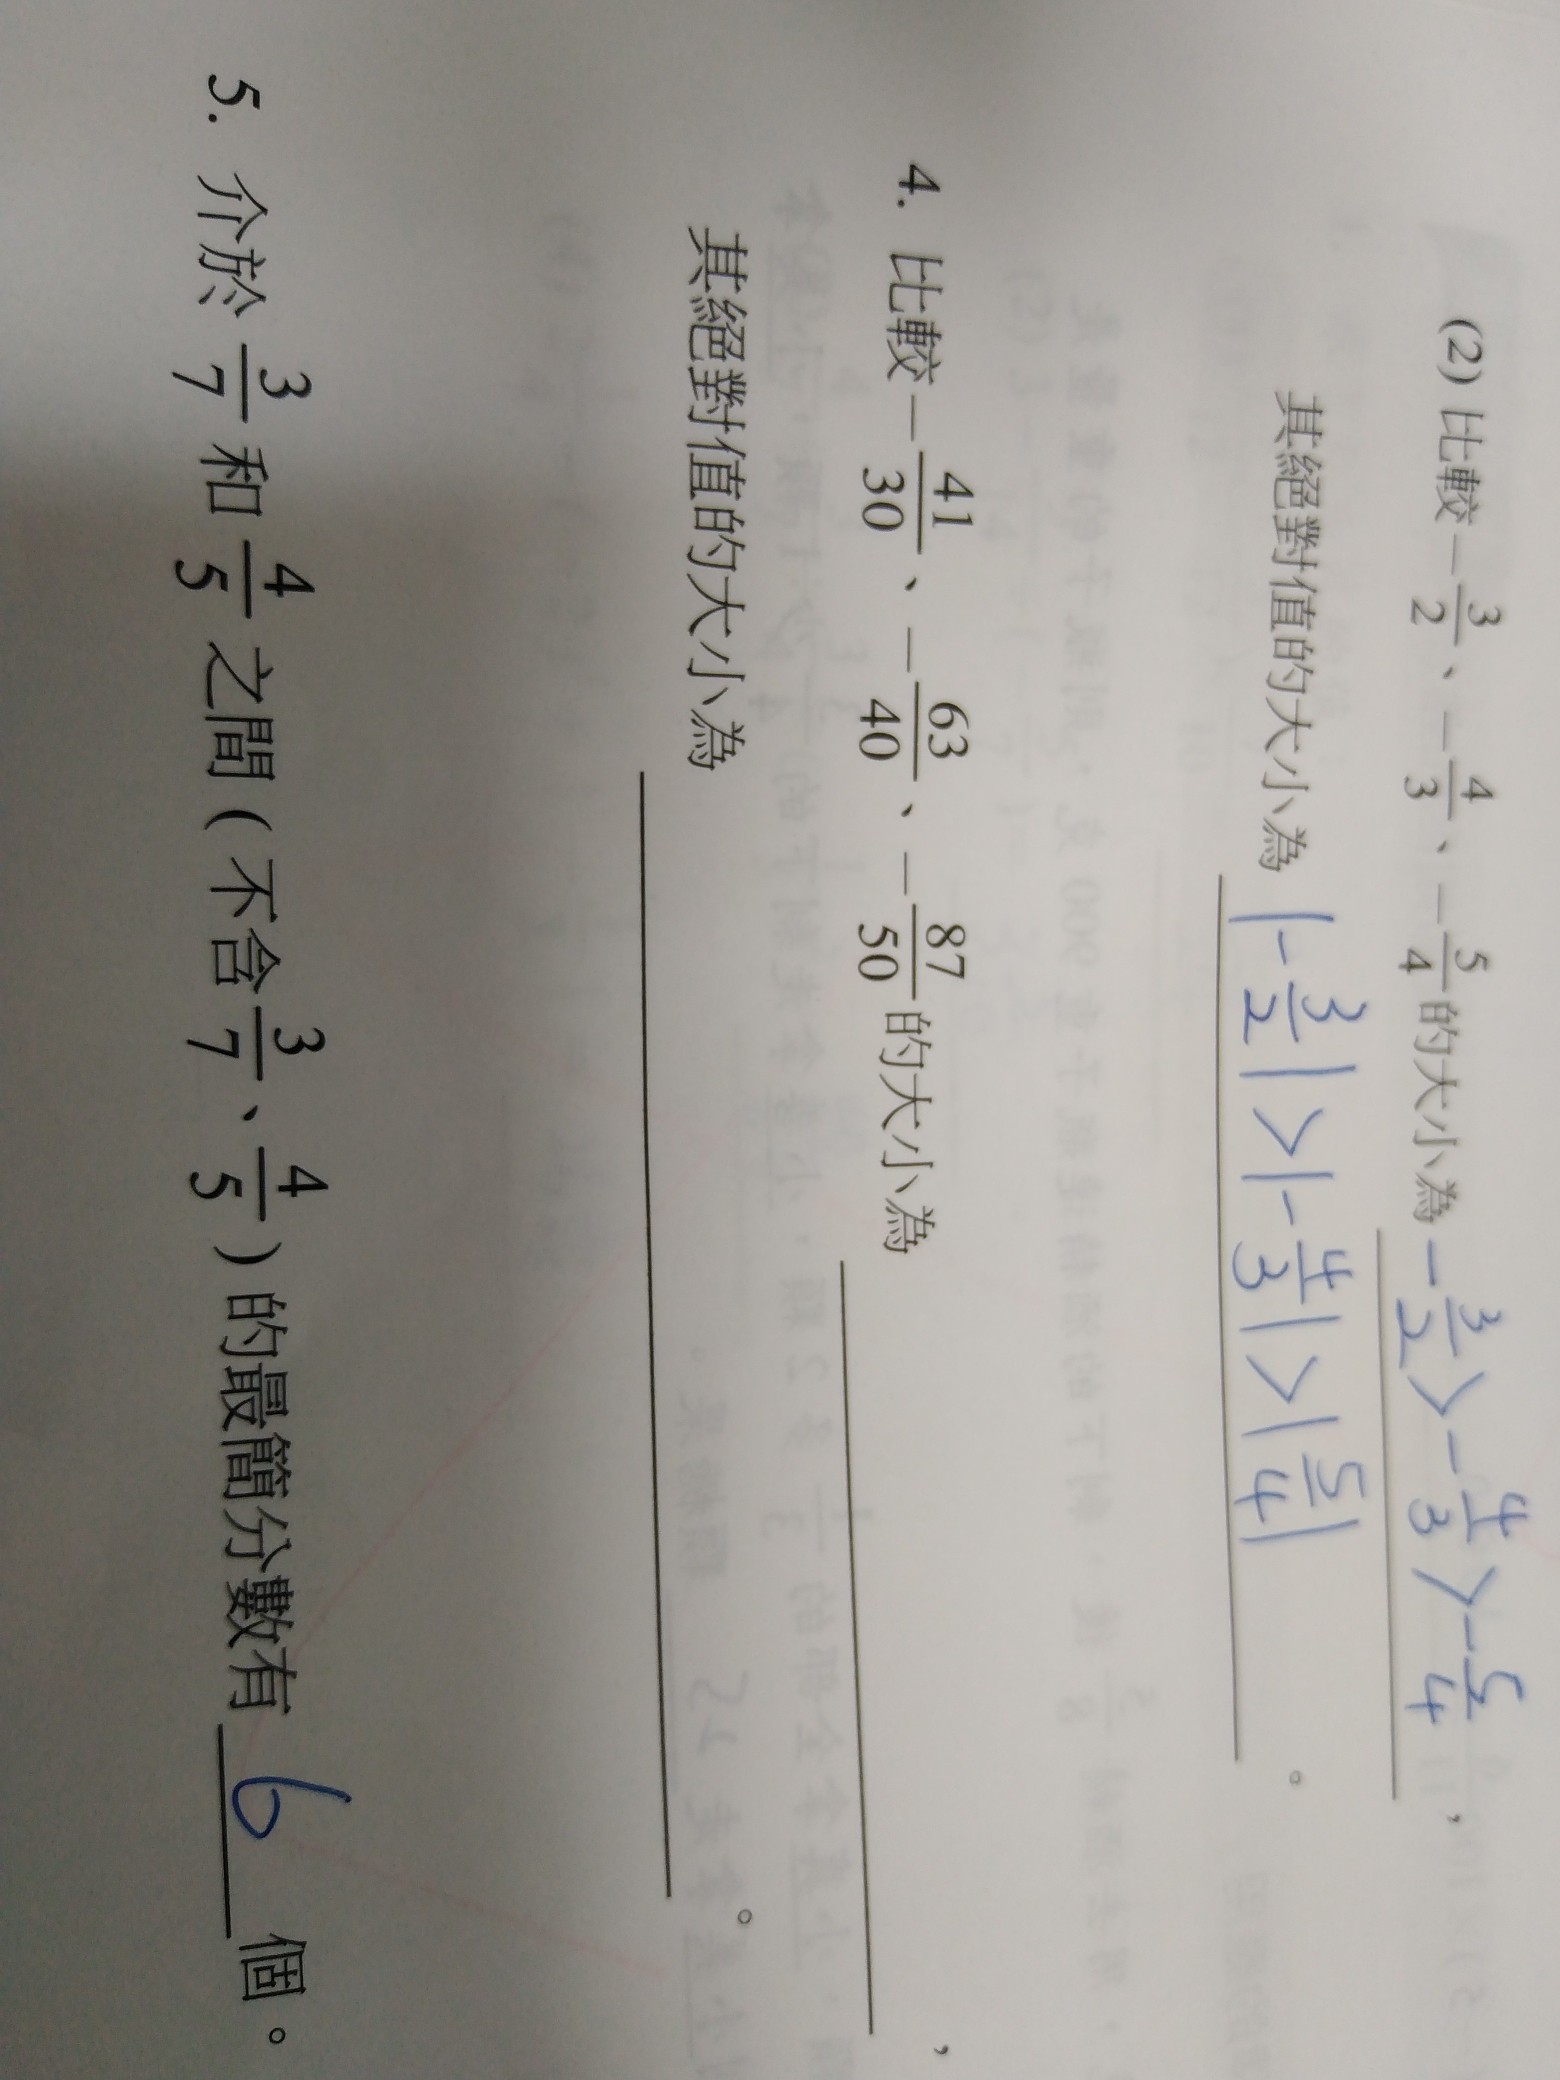 (2) 比較－3/2、－4/3、－5/4的大小為 －3/2＞－4/3＞－5/4，
其絕對值的大小為 |－3/2|＞|－4/3|＞|5/4|。
4. 比較－41/30、－63/40、－87/50的大小為 ，
其絕對值的大小為 。
5. 介於3/7和4/5之間(不含3/7、4/5)的最簡分數有 6 個。